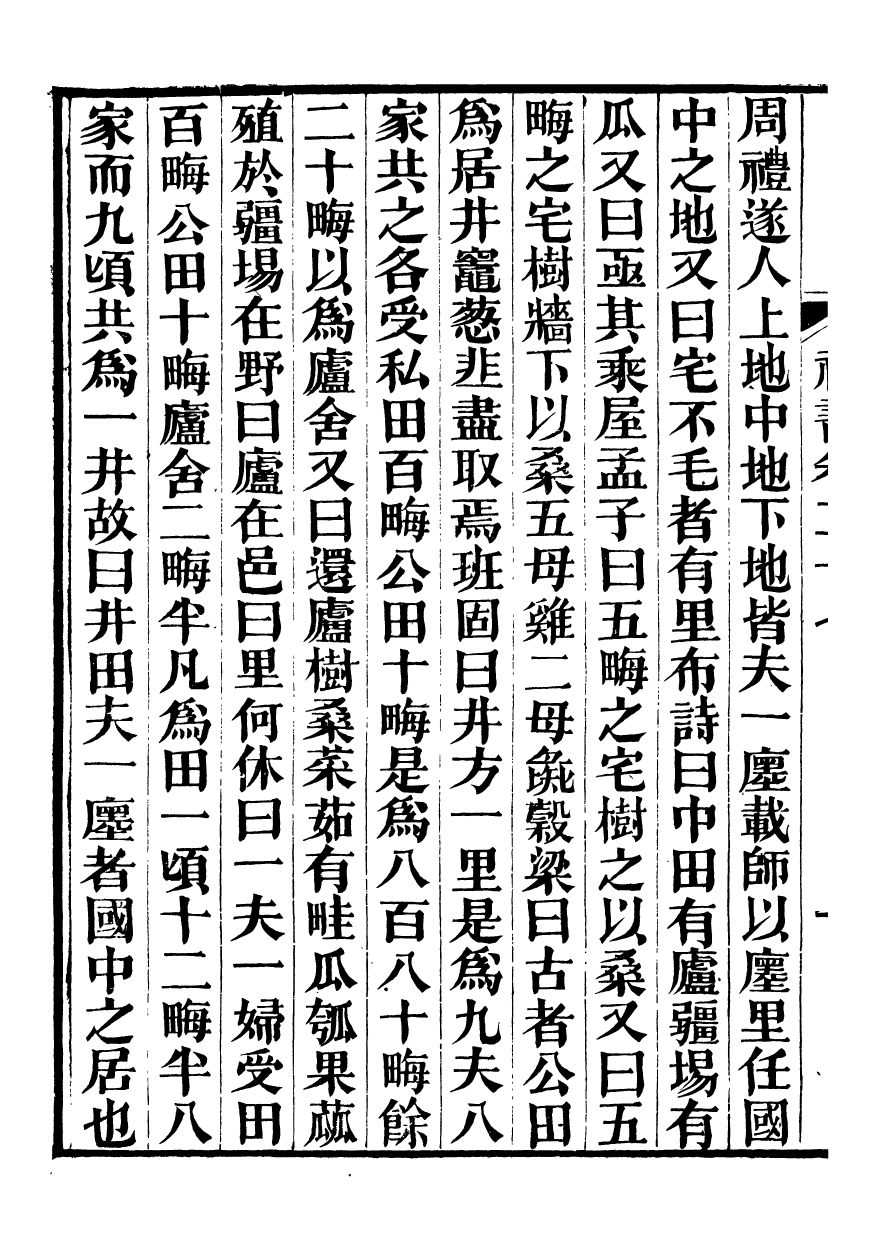 周禮遂人上地中地下地皆夫一廛載師以廛里任國
中之地又曰宅不毛者有里布詩曰中田有廬疆埸有
瓜又曰亟其乘屋孟子曰五畮之宅樹之以桑又曰五
畮之宅樹牆下以桑五母雞二母彘穀梁曰古者公田
爲居井竈葱韭盡取焉班固曰井方一里是爲九夫八
家共之各受私田百畮公田十畮是爲八百八十畮餘
二十畮以爲廬舍又曰還廬樹桑菜茹有畦瓜瓠果蓏
殖於疆埸在野曰廬在邑曰里何休曰一夫一婦受田
百畮公田十畮廬舍二畮半凡爲田一頃十二畮半八
家而九頃共爲一井故曰井田夫一廛者國中之居也